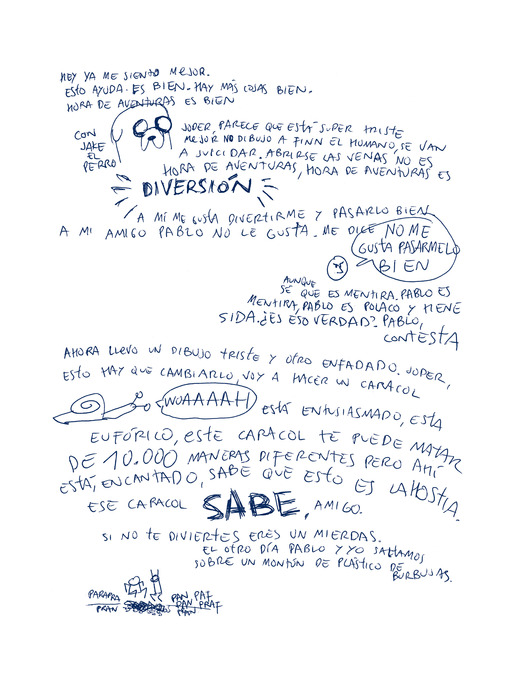 HEY YA ME SIENTO MEJOR.
ESTO AYUDA. ES BIEN. HAY MÁS COSAS BIEN.
HORA DE AVENTURAS ES BIEN
CON
JAKE
EL
PERRO
JODER, PARECE QUE ESTÁ SUPER TRISTE
MEJOR NO DIBUJO A FINN EL HUMANO, SE VAN
A SUICIDAR. ABRIRSE LAS VENAS NO ES
HORA DE AVENTURAS, HORA DE AVENTURAS ES
DIVERSIÓN
A MÍ ME GUSTA DIVERTIRME Y PASARLO BIEN
A MI AMIGO PABLO NO LE GUSTA. ME DICE
NO ME
GUSTA PASÁRMELO
BIEN
AUNQUE
SÉ QUE ES MENTIRA. PABLO ES
MENTIRA, PABLO ES POLACO Y TIENE
SIDA. ¿ES ESO VERDAD? PABLO,
CONTESTA
AHORA LLEVO UN DIBUJO TRISTE Y OTRO ENFADADO. JODER,
ESTO HAY QUE CAMBIARLO, VOY A HACER UN CARACOL
WOAAAAH
ESTÁ ENTUSIASMADO, ESTÁ
EUFÓRICO, ESTE CARACOL TE PUEDE MATAR
DE 10.000 MANERAS DIFERENTES PERO AHÍ
ESTÁ, ENCANTADO, SABE QUE ESTO ES LA HOSTIA.
ESE CARACOL SABE, AMIGO.
SI NO TE DIVIERTES ERES UN MIERDAS.
EL OTRO DÍA PABLO Y YO SALTAMOS
SOBRE UN MONTÓN DE PLÁSTICO DE
BURBUJAS.
PARAPRA
PRAN
PAN PAT
PAN PRAT
PAN